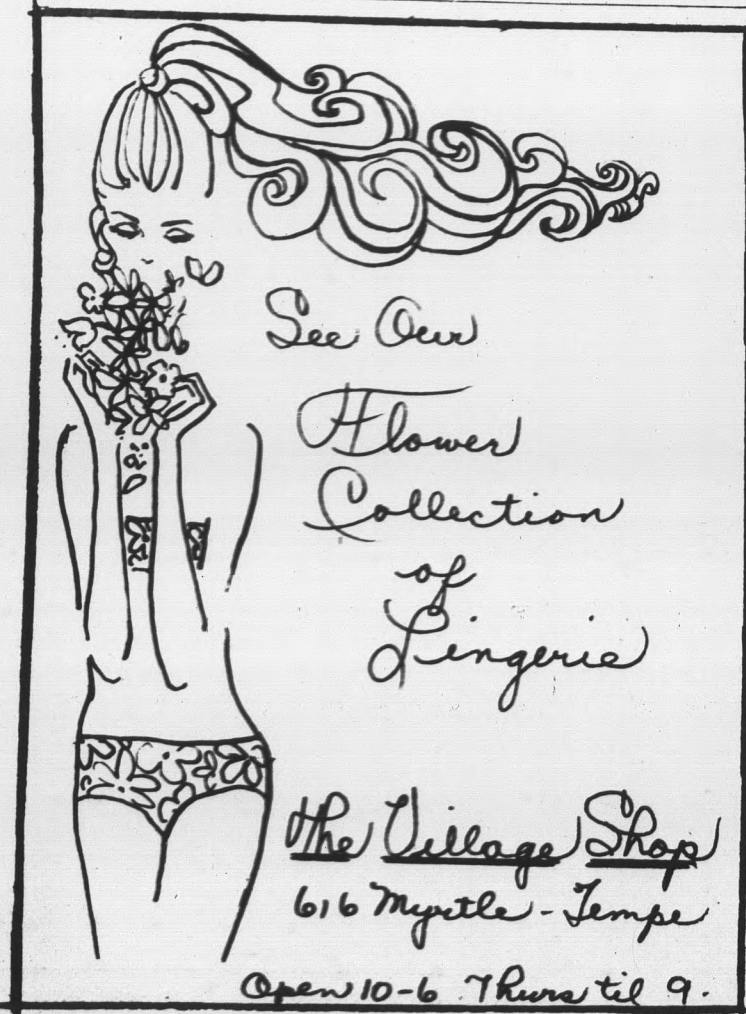 See Our
Flower
Collection
of
Lingerie
The Village Shop
616 Myrtle - Tempe
Open 10-6 Thurs til 9.